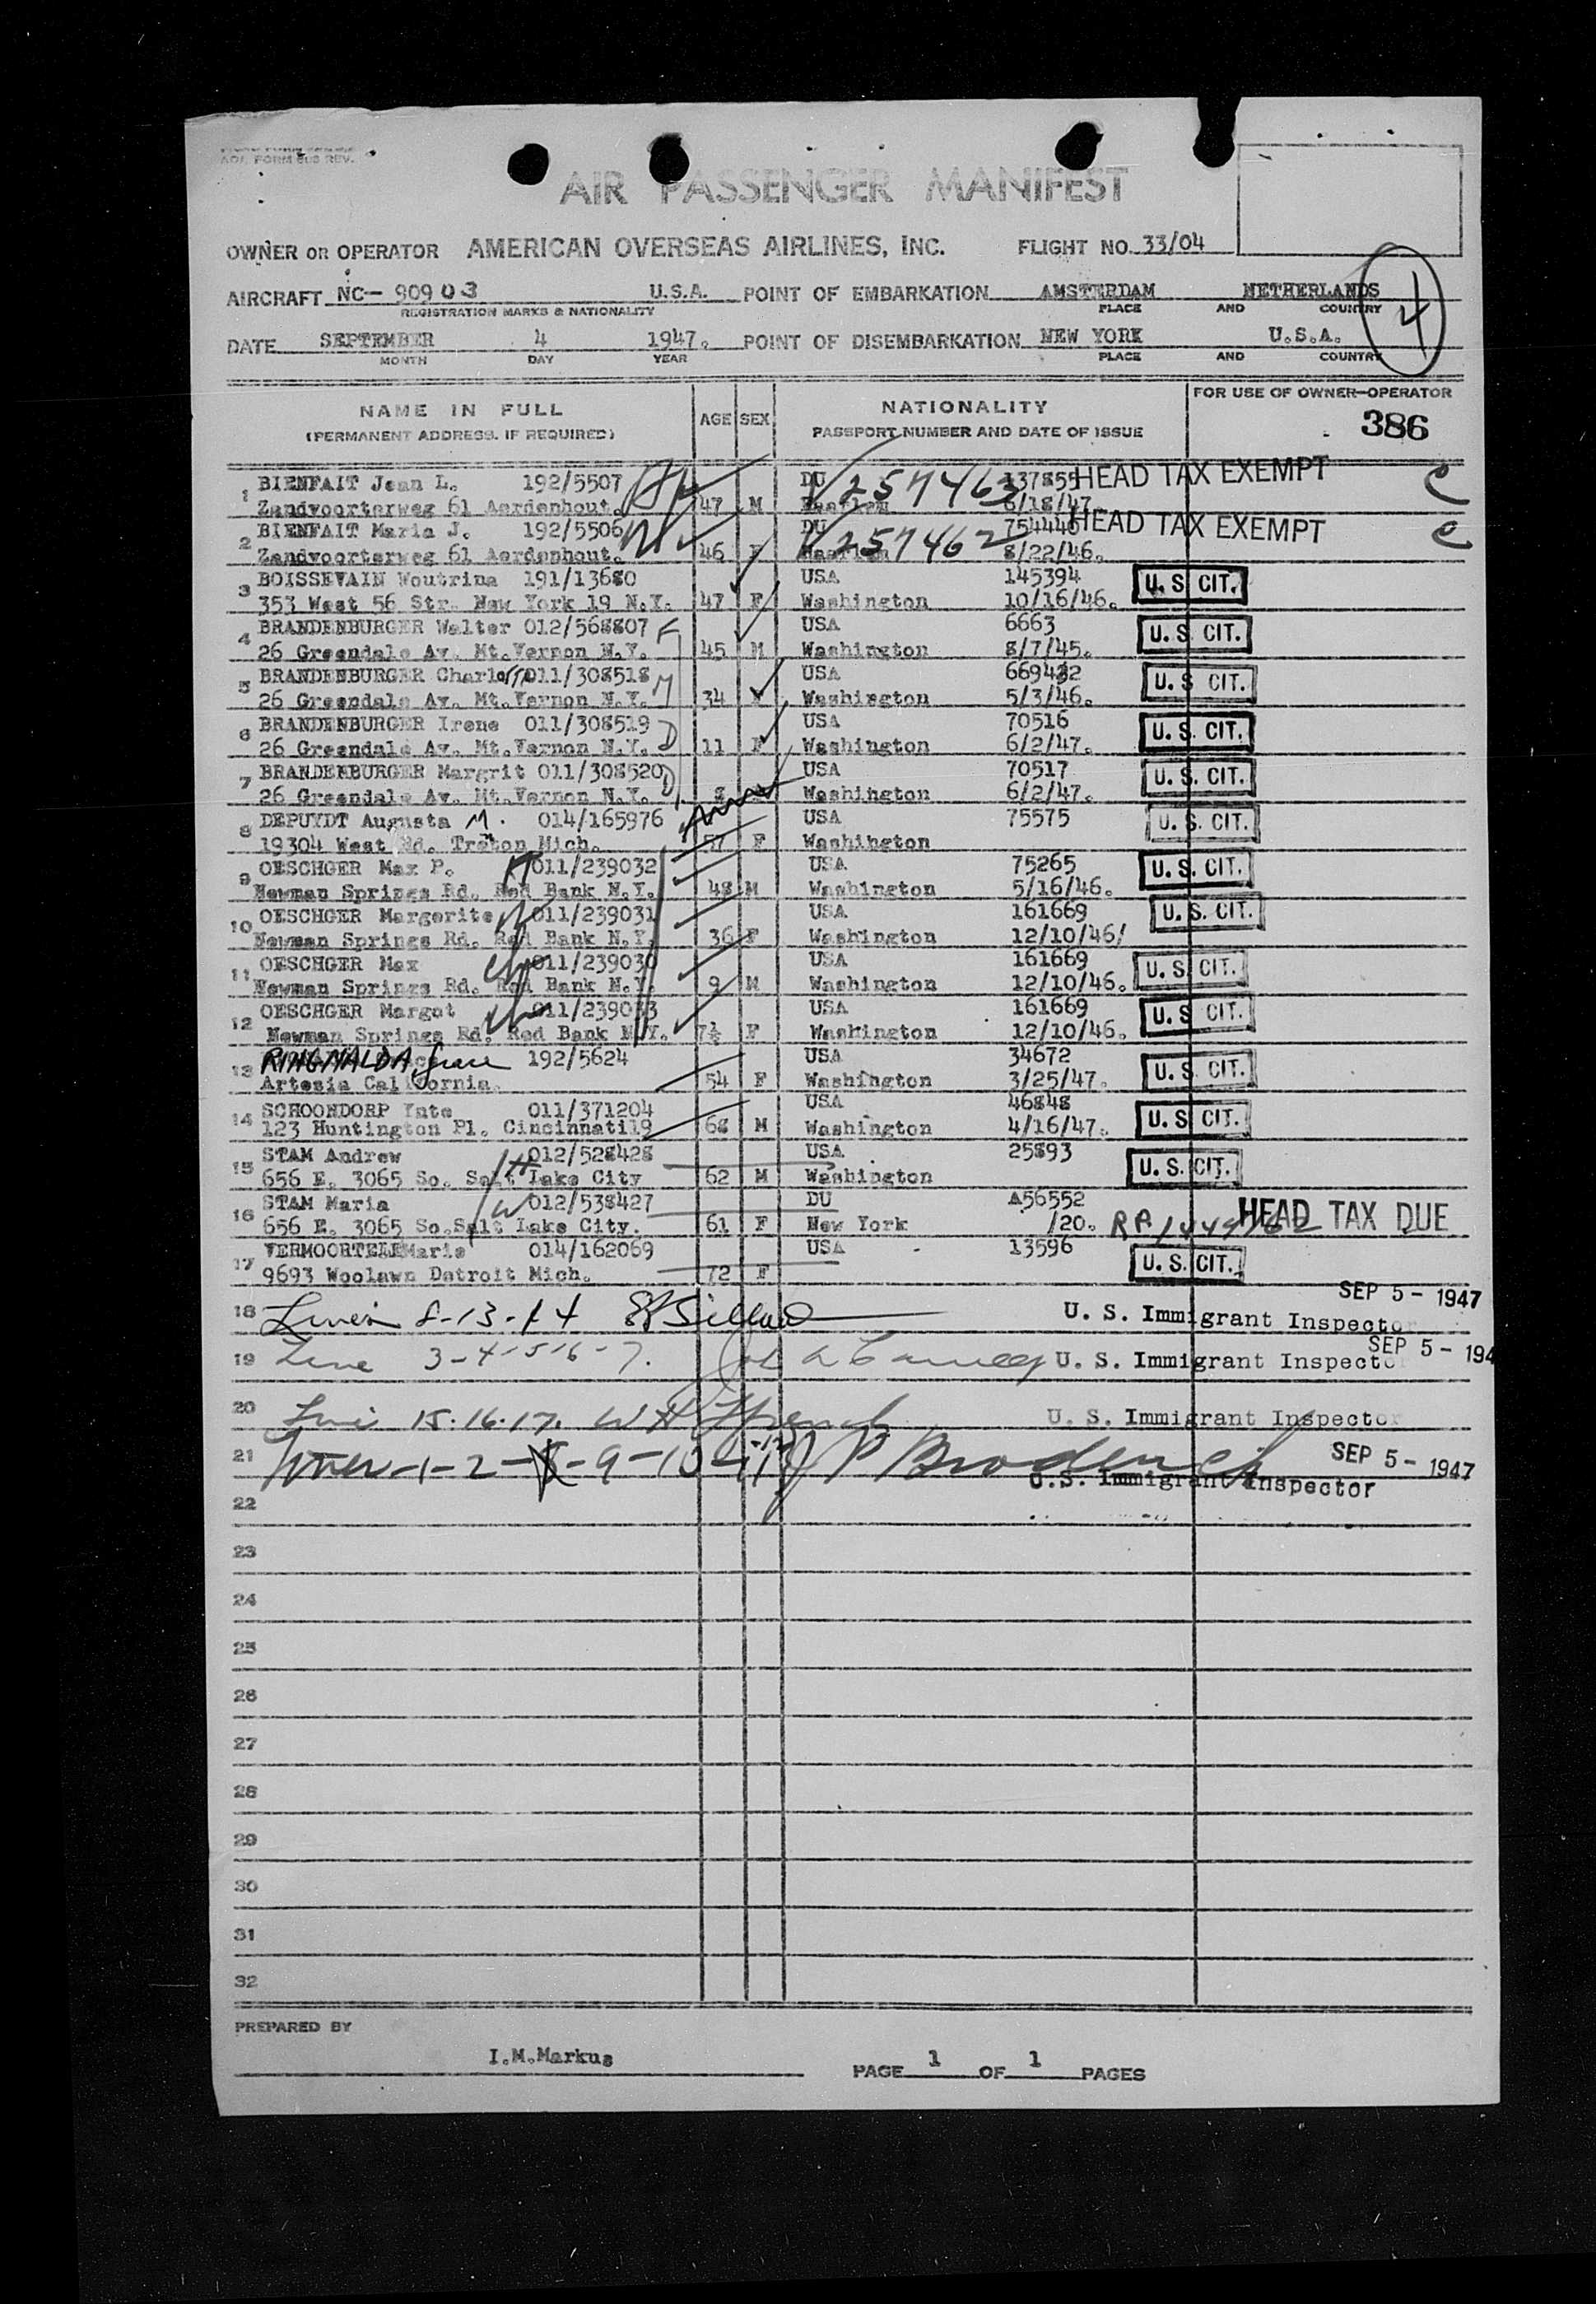 AOA FORM 808 REV.
AIR PASSENGER MANIFEST
OWNER OR OPERATOR AMERICAN OVERSEAS AIRLINES, INC. FLIGHT NO. 33/04
AIRCRAFT NC- 90903 U.S.A. POINT OF EMBARKATION AMSTERDAM NETHERLANDS
REGISTRATION MARKS & NATIONALITY PLACE AND COUNTRY
4
DATE SEPTEMBER 4 1947. POINT OF DISEMBARKATION NEW YORK U.S.A.
MONTH DAY YEAR PLACE AND COUNTRY
NAME IN FULL AGE SEX NATIONALITY FOR USE OF OWNER-OPERATOR
(PERMANENT ADDRESS, IF REQUIRED) PASSPORT NUMBER AND DATE OF ISSUE 386
1 BIENFAIT Jean L. 192/5507 DU V 257463 337855 HEAD TAX EXEMPT C
Zandvoorterweg 61 Aerdenhout. 47 M Haarlem 6/18/47
2 BIENFAIT Maria J. 192/5506 W DU V 257462 754440 HEAD TAX EXEMPT C
Zandvoorterweg 61 Aerdenhout. 46 F Haarlem 8/22/46.
3 BOISSEVAIN Woutrina 191/13680 USA 145394 U.S. CIT.
353 West 56 Str. New York 19 N.Y. 47 F Washington 10/16/46.
4 BRANDENBURGER Walter 012/568807 F USA 6663 U.S. CIT.
26 Greendale Av. Mt.Vernon N.Y. 45 M Washington 8/7/45.
5 BRANDENBURGER Charlotte 011/308518 M USA 669482 U.S. CIT.
26 Greendale Av. Mt.Vernon N.Y. 34 F Washington 5/3/46.
6 BRANDENBURGER Irene 011/308519 D USA 70516 U.S. CIT.
26 Greendale Av. Mt.Vernon N.Y. 11 F Washington 6/2/47.
7 BRANDENBURGER Margrit 011/308520 D USA 70517 U.S. CIT.
26 Greendale Av. Mt.Vernon N.Y. 8 Washington 6/2/47.
8 DEPUYDT Augusta M. 014/165976 USA 75575 U.S. CIT.
19304 West Rd. Treton Mich. 57 F Washington
9 OESCHGER Max P. H 011/239032 USA 75265 U.S. CIT.
Newman Springs Rd. Red Bank N.Y. 48 M Washington 5/16/46.
10 OESCHGER Margerite W 011/239031 USA 161669 U.S. CIT.
Newman Springs Rd. Red Bank N.Y. 36 F Washington 12/10/46/
11 OESCHGER Max ch 011/239030 USA 161669 U.S. CIT.
Newman Springs Rd. Red Bank N.Y. 9 M Washington 12/10/46.
12 OESCHGER Margot ch 011/239033 USA 161669 U.S. CIT.
Newman Springs Rd. Red Bank N.Y. 7½ F Washington 12/10/46.
13 RINGNALDA Grace 192/5624 USA 34672 U.S. CIT.
Artesia California. 54 F Washington 3/25/47.
14 SCHOONDORP Yate 011/371204 USA 46848 U.S. CIT.
123 Huntington Pl. Cincinnati19 68 M Washington 4/16/47.
15 STAM Andrew H 012/528428 USA 25893 U.S. CIT.
656 E. 3065 So. Salt Lake City 62 M Washington
16 STAM Maria W 012/538427 DU A56552 HEAD TAX DUE
656 E. 3065 So.Salt Lake City. 61 F New York /20. RP
17 VERMOORTELE Marie 014/162069 USA 13596 U.S. CIT.
9693 Woolawn Detroit Mich. 72 F
SEP 5 - 1947
18 U. S. Immigrant Inspector
SEP 5 - 194
19 Line 3-4-5-6-7. U. S. Immigrant Inspector
20 Line 15.16.17. U. S. Immigrant Inspector
21 Lines 1-2-8-9-10-11-12 SEP 5 - 1947
U.S. Immigrant Inspector
22
23
24
25
26
27
28
29
30
31
32
PREPARED BY
I.M.Markus
PAGE 1 OF 1 PAGES